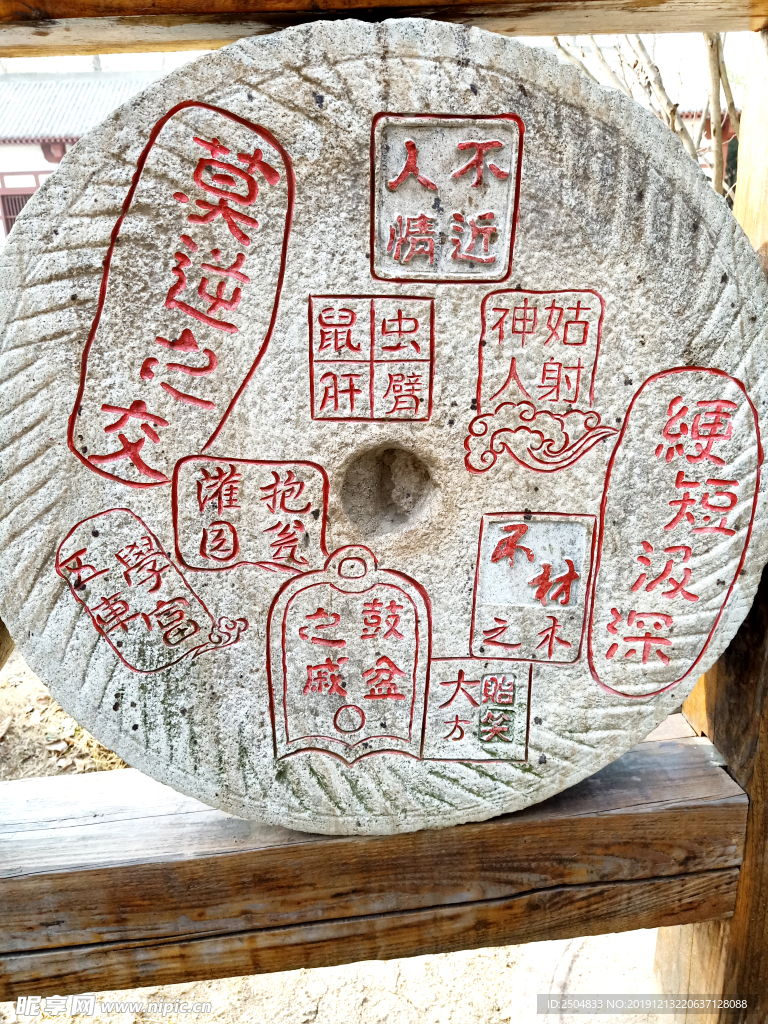 莫逆之交
不近
人情
虫臂
鼠肝
姑射
神人
绠短汲深
抱瓮
灌园
學富
五車
不材
之木
鼓盆
之戚
貽笑
大方
昵享网 www.nipic.cn
ID:2504833 NO:20191213220637128088